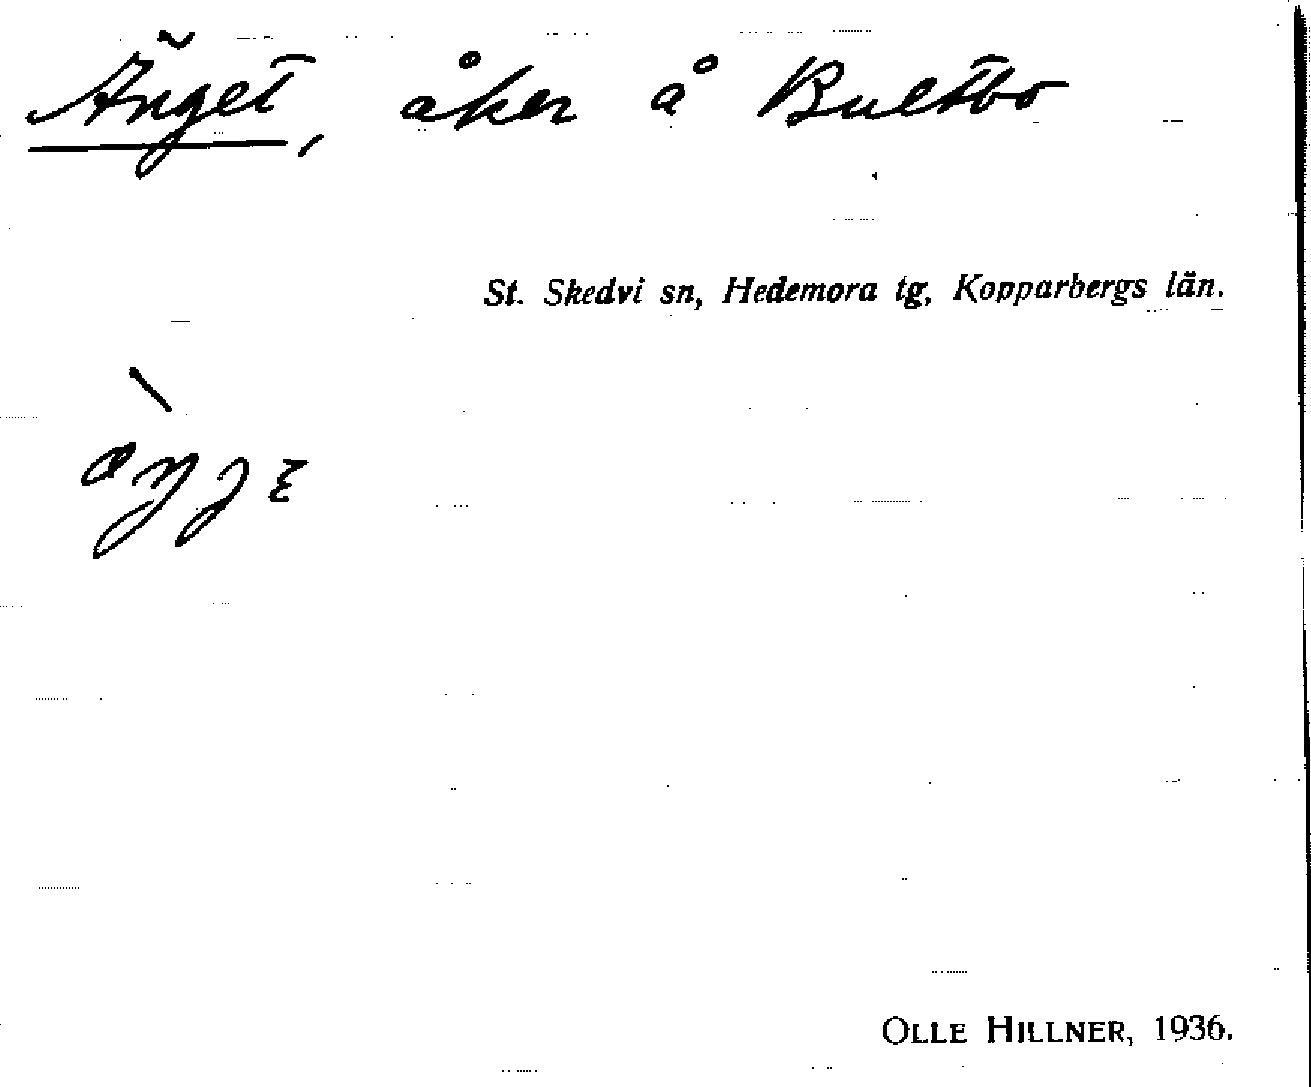 Änget, åker å Bultbo
St. Skedvi sn, Hedemora tg, Kopparbergs län.
æŋjɛ
OLLE HILLNER, 1936.